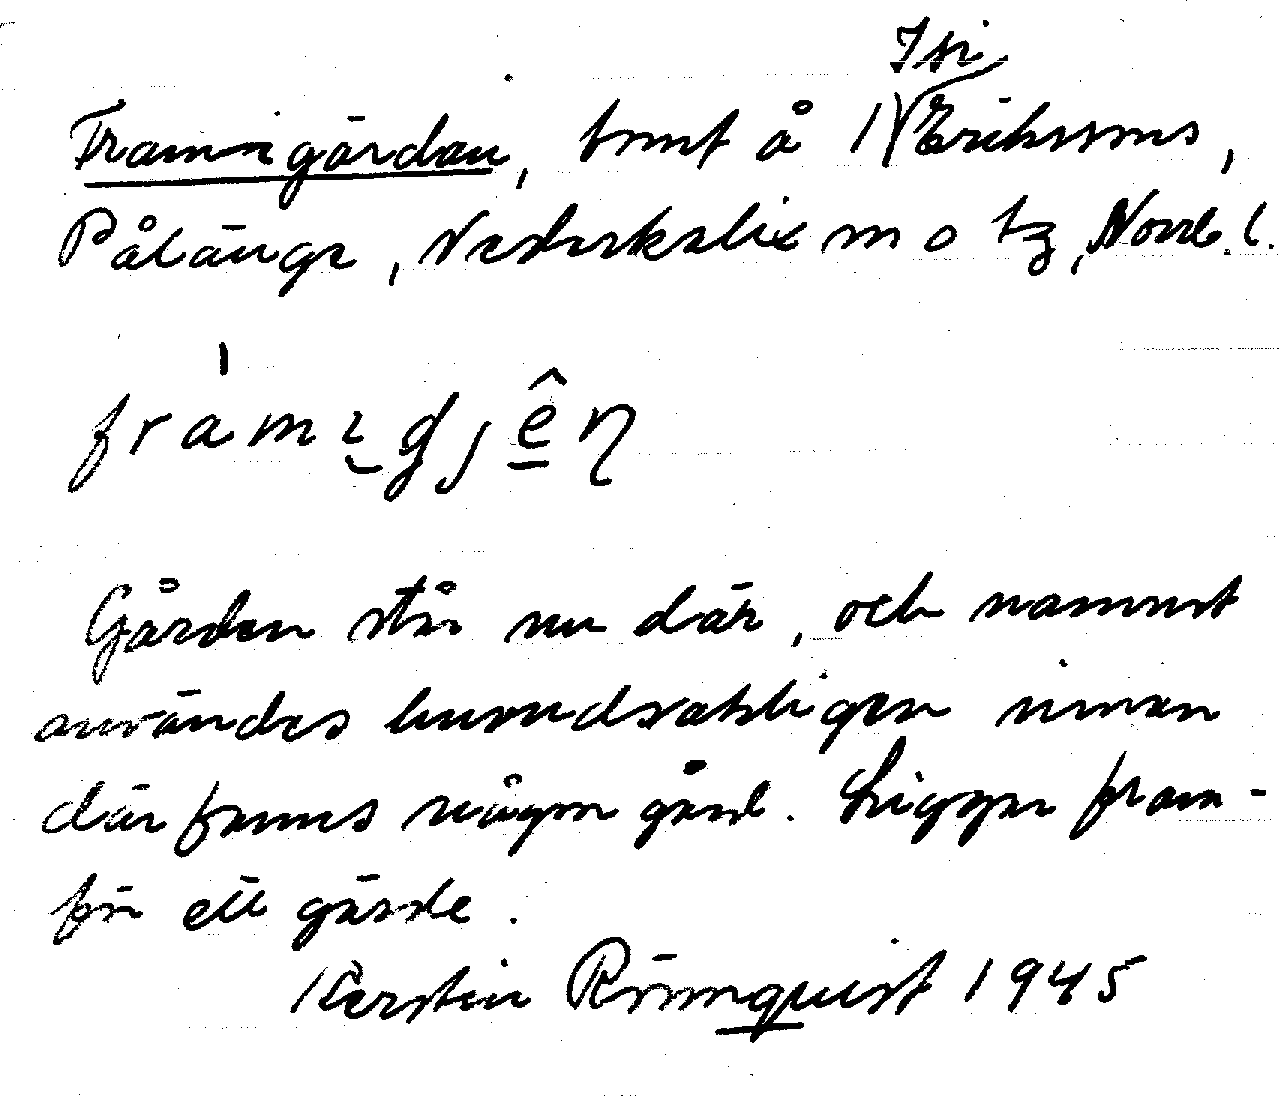 Isi
Främigärdan, tomt å 1 Erikssons,
Pålänge, Nederkalix m o tg, Norrb. l.
framıgjên
Gården står nu där, och namnet
användes huvudsakligen innan
där fanns någon gård. Ligger fram-
för ett gärde.
Kerstin Rönnquist 1945